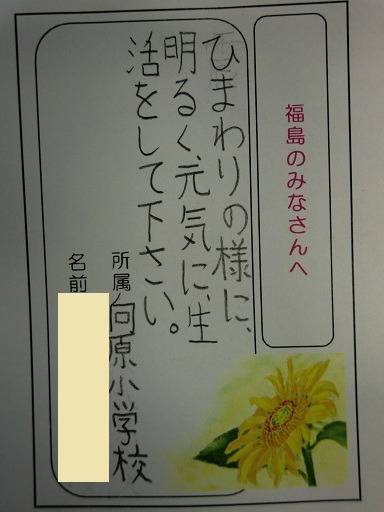 福島のみなさんへ
ひまわりの様に、
明るく、元気に、生
活をして下さい。
所属 向原小学校
名前